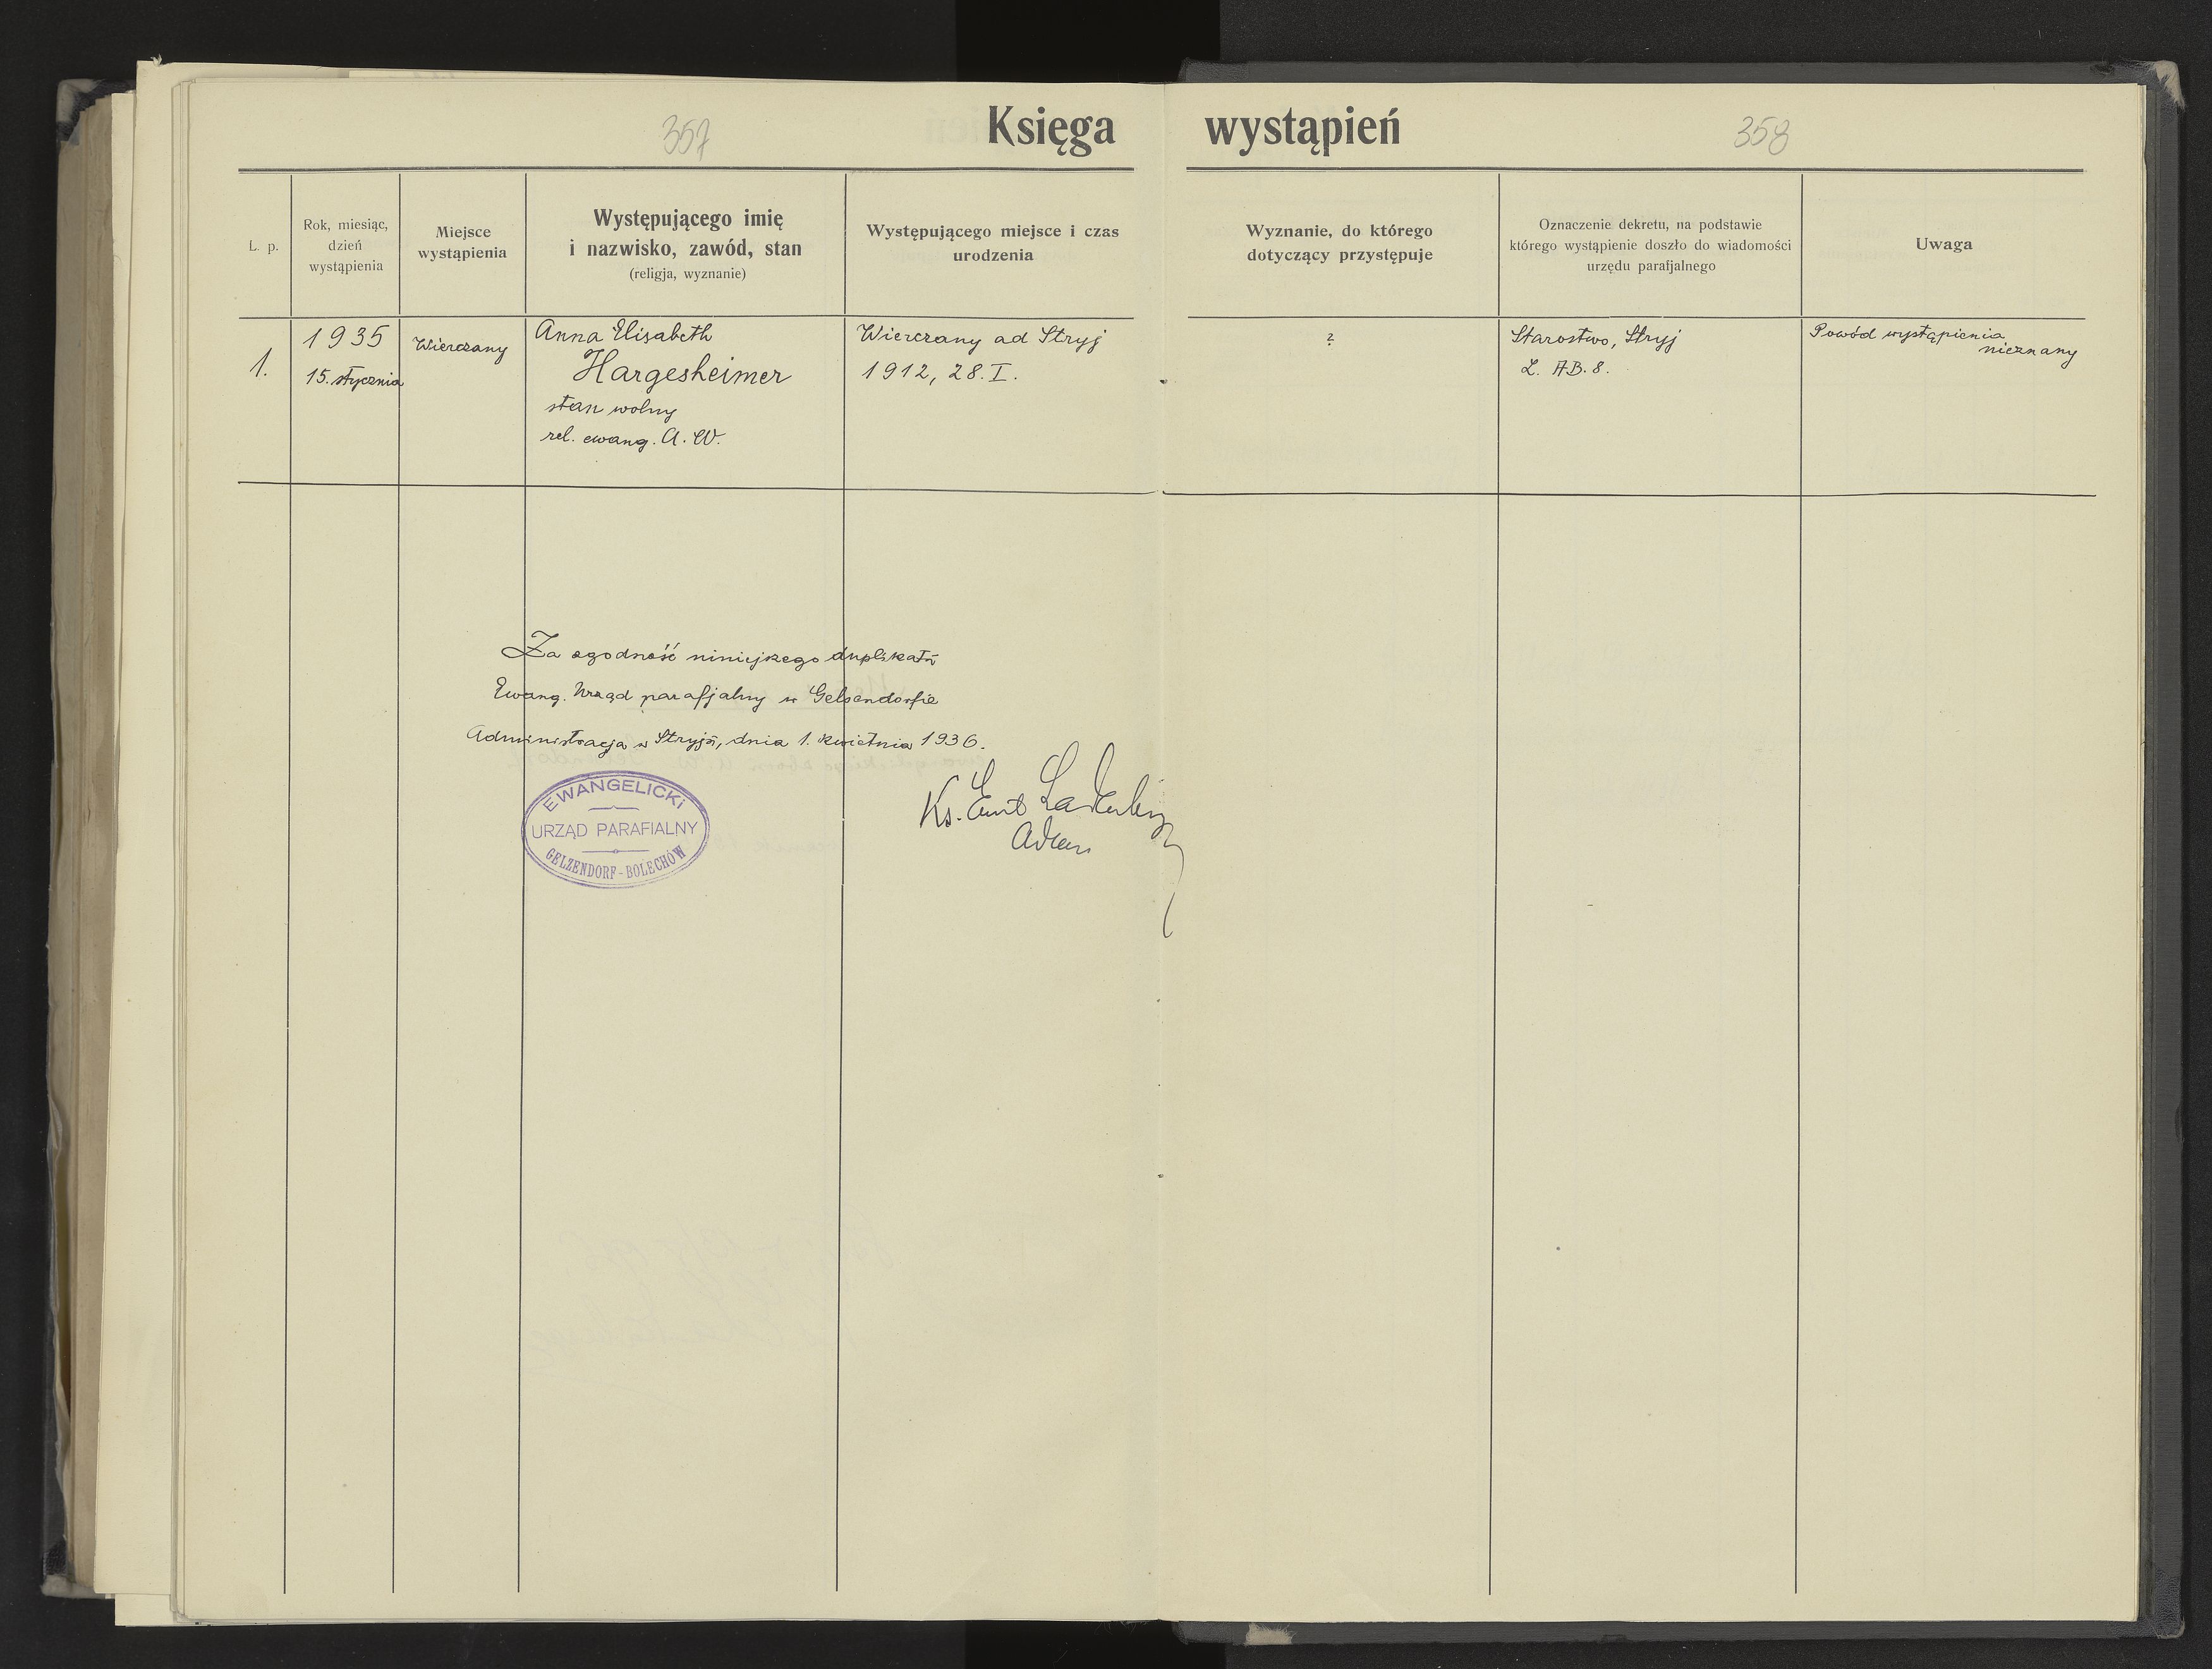 357
Księga wystąpień
358
L. p.
Rok, miesiąc,
dzień
wystąpienia
Miejsce
wystąpienia
Występującego imię
i nazwisko, zawód, stan
(religja, wyznanie)
Występującego miejsce i czas
urodzenia
Wyznanie, do którego
dotyczący przystępuje
Oznaczenie dekretu, na podstawie
którego wystąpienie doszło do wiadomości
urzędu parafjalnego
Uwaga
1.
1935
15. stycznia
Wierczany
Anna Elisabeth
Hargesheimer
stan wolny
rel. ewang. A. W.
Wierczany ad Stryj
1912, 28. I.
?
Starostwo, Stryj
L. AB. 8.
Powód wystąpienia
nieznany
Za zgodność niniejszego duplikatu
Ewang. Urząd parafjalny w Gelsendorfie
Administracja w Stryju, dnia 1. kwietnia 1936.
EWANGELICKI
URZĄD PARAFIALNY
GELZENDORF - BOLECHÓW
Ks.